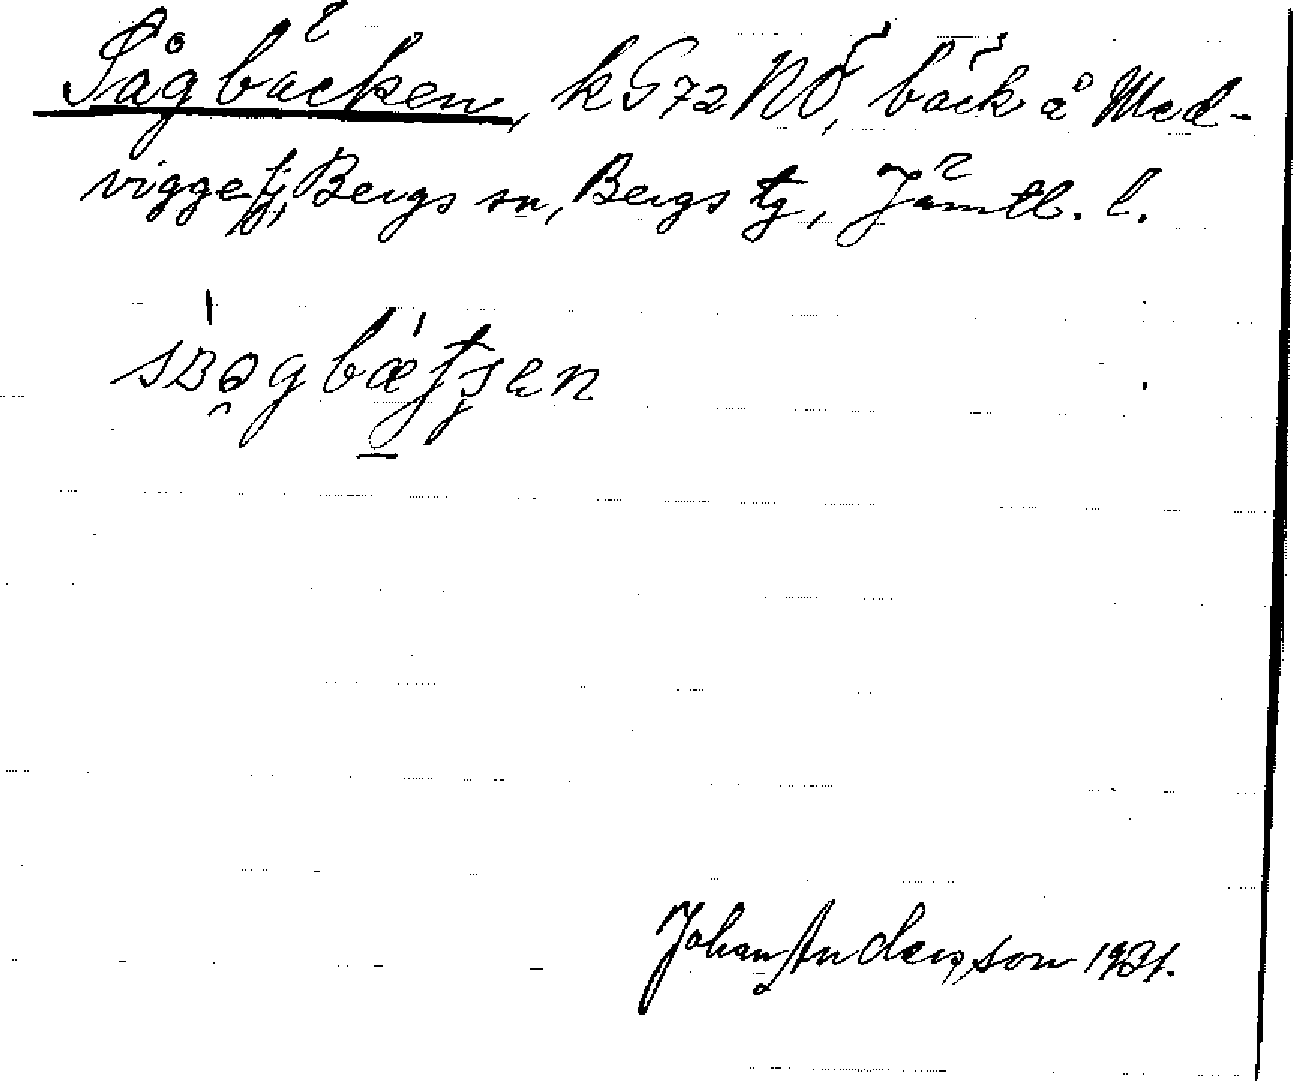 Sågbäcken, k G 72 NÖ, bäck å Med-
viggefj, Bergs sn, Bergs tg, Jämtl. l.
Johan Andersson 1931.